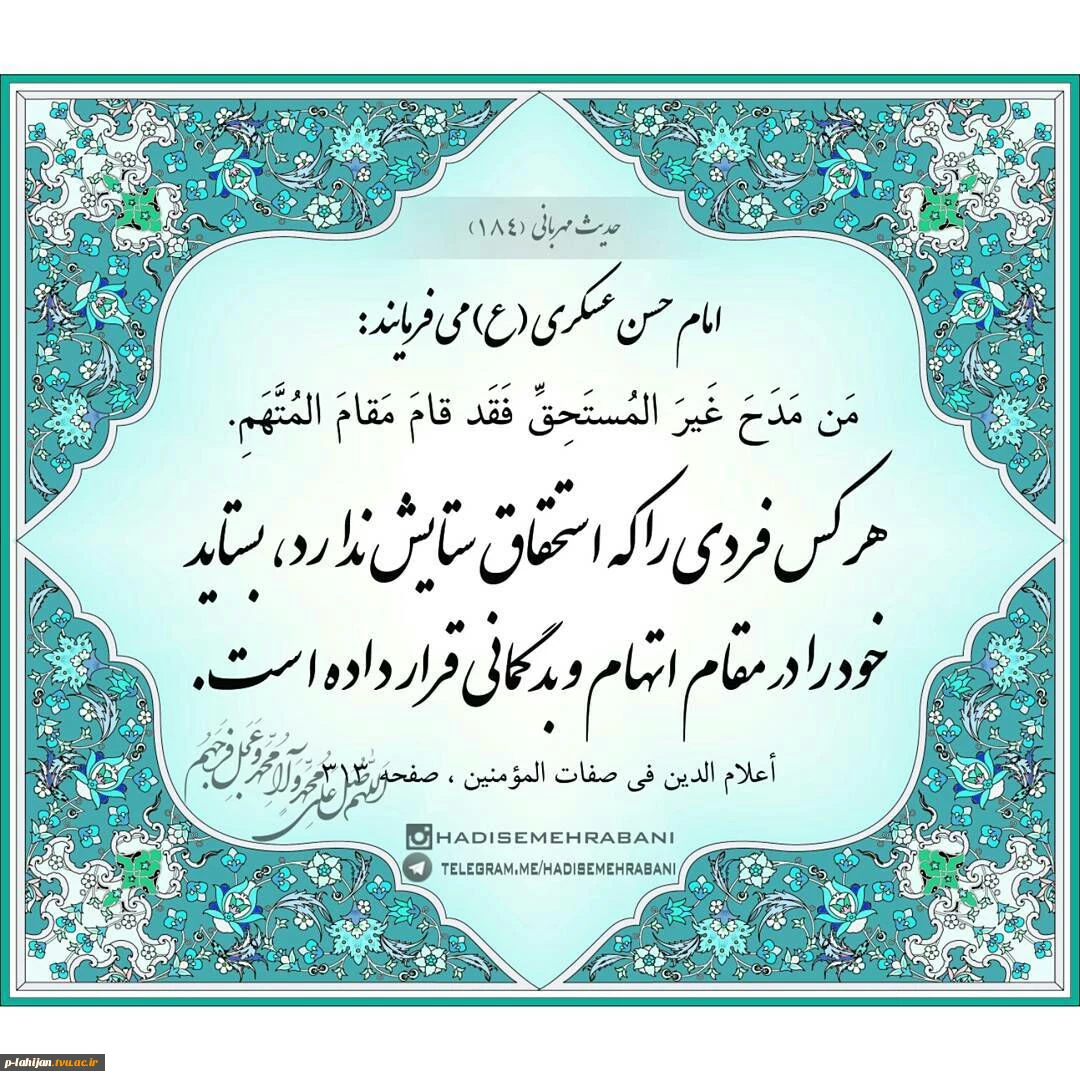 حدیث مهربانی (١٨٤)
امام حسن عسکری (ع) می فرمایند:
مَن مَدَحَ غَیرَ المُستَحِقِّ فَقَد قامَ مَقامَ المُتَّهَمِ.
هر کس فردی را که استحقاق ستایش ندارد، بستاید
خود را در مقام اتهام و بدگمانی قرار داده است.
أعلام الدین فی صفات المؤمنین ، صفحه ٣١٣
اللّهم صلّ علی محمّد و آل محمّد و عجّل فرجهم
HADISEMEHRABANI
TELEGRAM.ME/HADISEMEHRABANI
p-lahijan.tvu.ac.ir